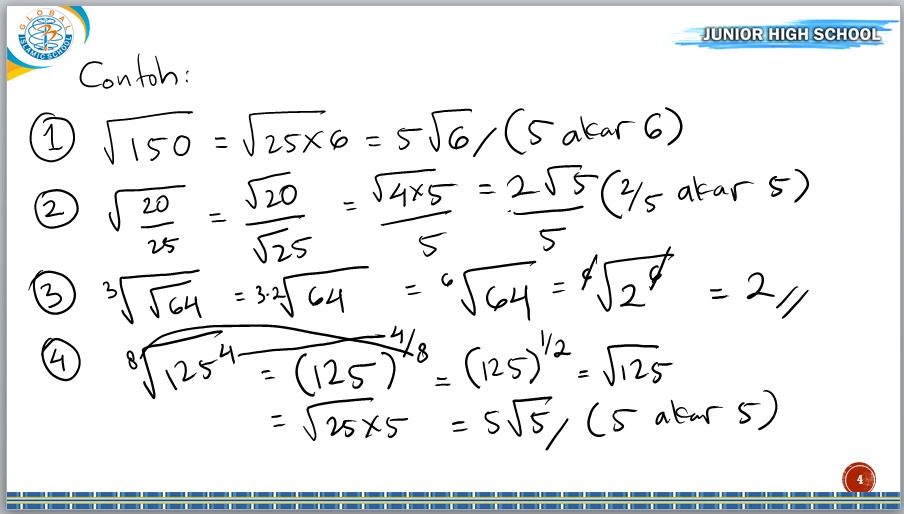 GLOBAL
ISLAMIC SCHOOL
JUNIOR HIGH SCHOOL
Contoh:
① √150 = √25×6 = 5√6 // (5 akar 6)
② √(20/25) = √20/√25 = √4×5/5 = 2√5/5 (2/5 akar 5)
③ ³√√64 = ³·²√64 = ⁶√64 = ⁶√2⁶ = 2 //
④ ⁸√125⁴ = (125)^4/8 = (125)^1/2 = √125
= √25×5 = 5√5 // (5 akar 5)
4